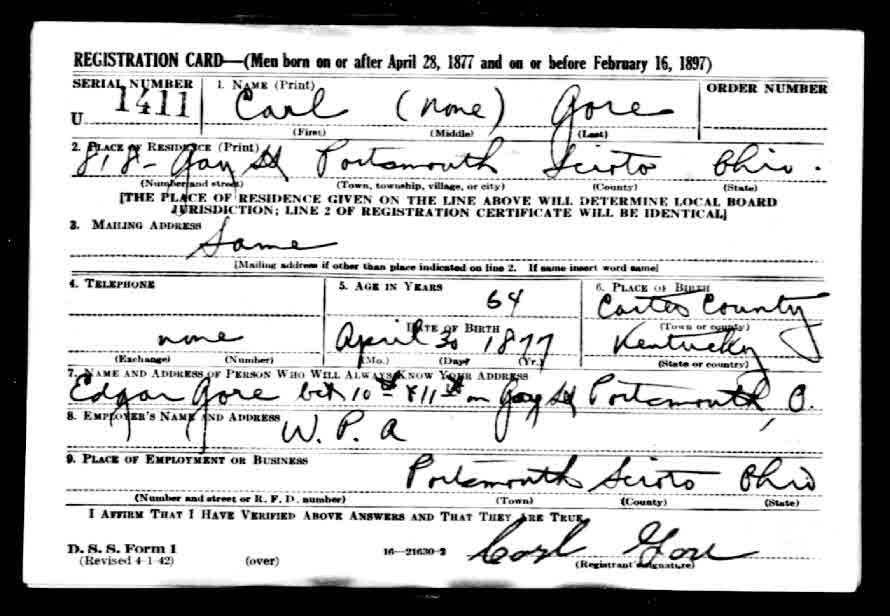 REGISTRATION CARD—(Men born on or after April 28, 1877 and on or before February 16, 1897)
SERIAL NUMBER 1. NAME (Print) ORDER NUMBER
U 1411 Carl (none) Gore
(First) (Middle) (Last)
2. PLACE OF RESIDENCE (Print)
818 - Gay St Portsmouth Scioto Ohio.
(Number and street) (Town, township, village, or city) (County) (State)
[THE PLACE OF RESIDENCE GIVEN ON THE LINE ABOVE WILL DETERMINE LOCAL BOARD
JURISDICTION; LINE 2 OF REGISTRATION CERTIFICATE WILL BE IDENTICAL]
3. MAILING ADDRESS
Same
[Mailing address if other than place indicated on line 2. If same insert word same]
4. TELEPHONE 5. AGE IN YEARS 6. PLACE OF BIRTH
64 Carter County
DATE OF BIRTH (Town or county)
none April 30 1877 Kentucky
(Exchange) (Number) (Mo.) (Day) (Yr.) (State or country)
7. NAME AND ADDRESS OF PERSON WHO WILL ALWAYS KNOW YOUR ADDRESS
Edgar Gore bet 10th & 11th on Gay St Portsmouth, O.
8. EMPLOYER'S NAME AND ADDRESS
W. P. A
9. PLACE OF EMPLOYMENT OR BUSINESS
Portsmouth Scioto Ohio
(Number and street or R. F. D. number) (Town) (County) (State)
I AFFIRM THAT I HAVE VERIFIED ABOVE ANSWERS AND THAT THEY ARE TRUE.
D. S. S. Form 1
(Revised 4-1-42) (over) 16—21630-2 Carl Gore
(Registrant's signature)